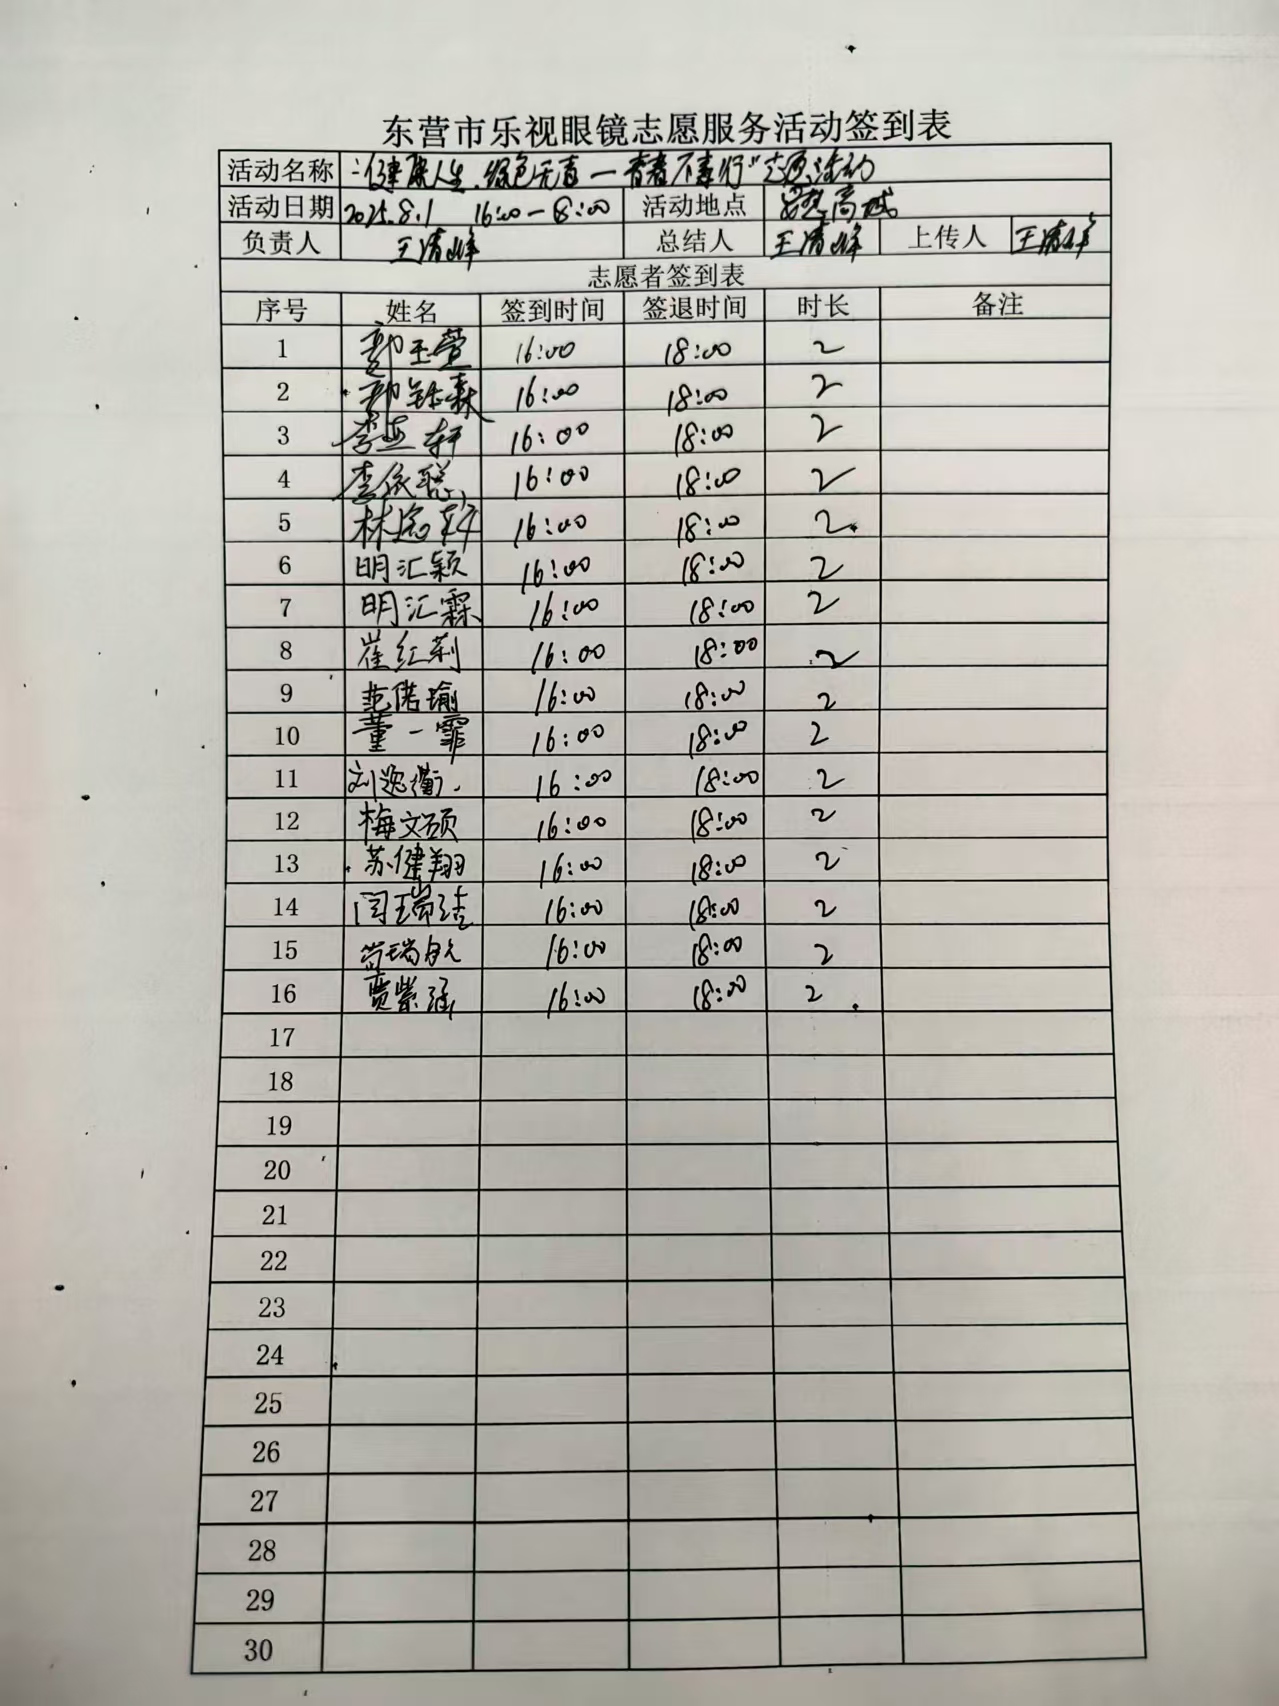 东营市乐视眼镜志愿服务活动签到表
活动名称 "健康人生、绿色无毒—青春不"毒"行"志愿活动
活动日期 2025.8.1 16:00—18:00 活动地点
负责人 王清峰 总结人 王清峰 上传人 王清峰
志愿者签到表
序号 姓名 签到时间 签退时间 时长 备注
1 郭玉萱 16:00 18:00 2
2 郭钰森 16:00 18:00 2
3 李 轩 16:00 18:00 2
4 李依聪 16:00 18:00 2
5 林 轩 16:00 18:00 2
6 明汇颖 16:00 18:00 2
7 明汇霖 16:00 18:00 2
8 崔红莉 16:00 18:00 2
9 范偌瑜 16:00 18:00 2
10 董一霏 16:00 18:00 2
11 刘逸衡 16:00 18:00 2
12 梅文硕 16:00 18:00 2
13 苏健翔 16:00 18:00 2
14 闫瑞洁 16:00 18:00 2
15 瑞航 16:00 18:00 2
16 贾紫涵 16:00 18:00 2
17
18
19
20
21
22
23
24
25
26
27
28
29
30